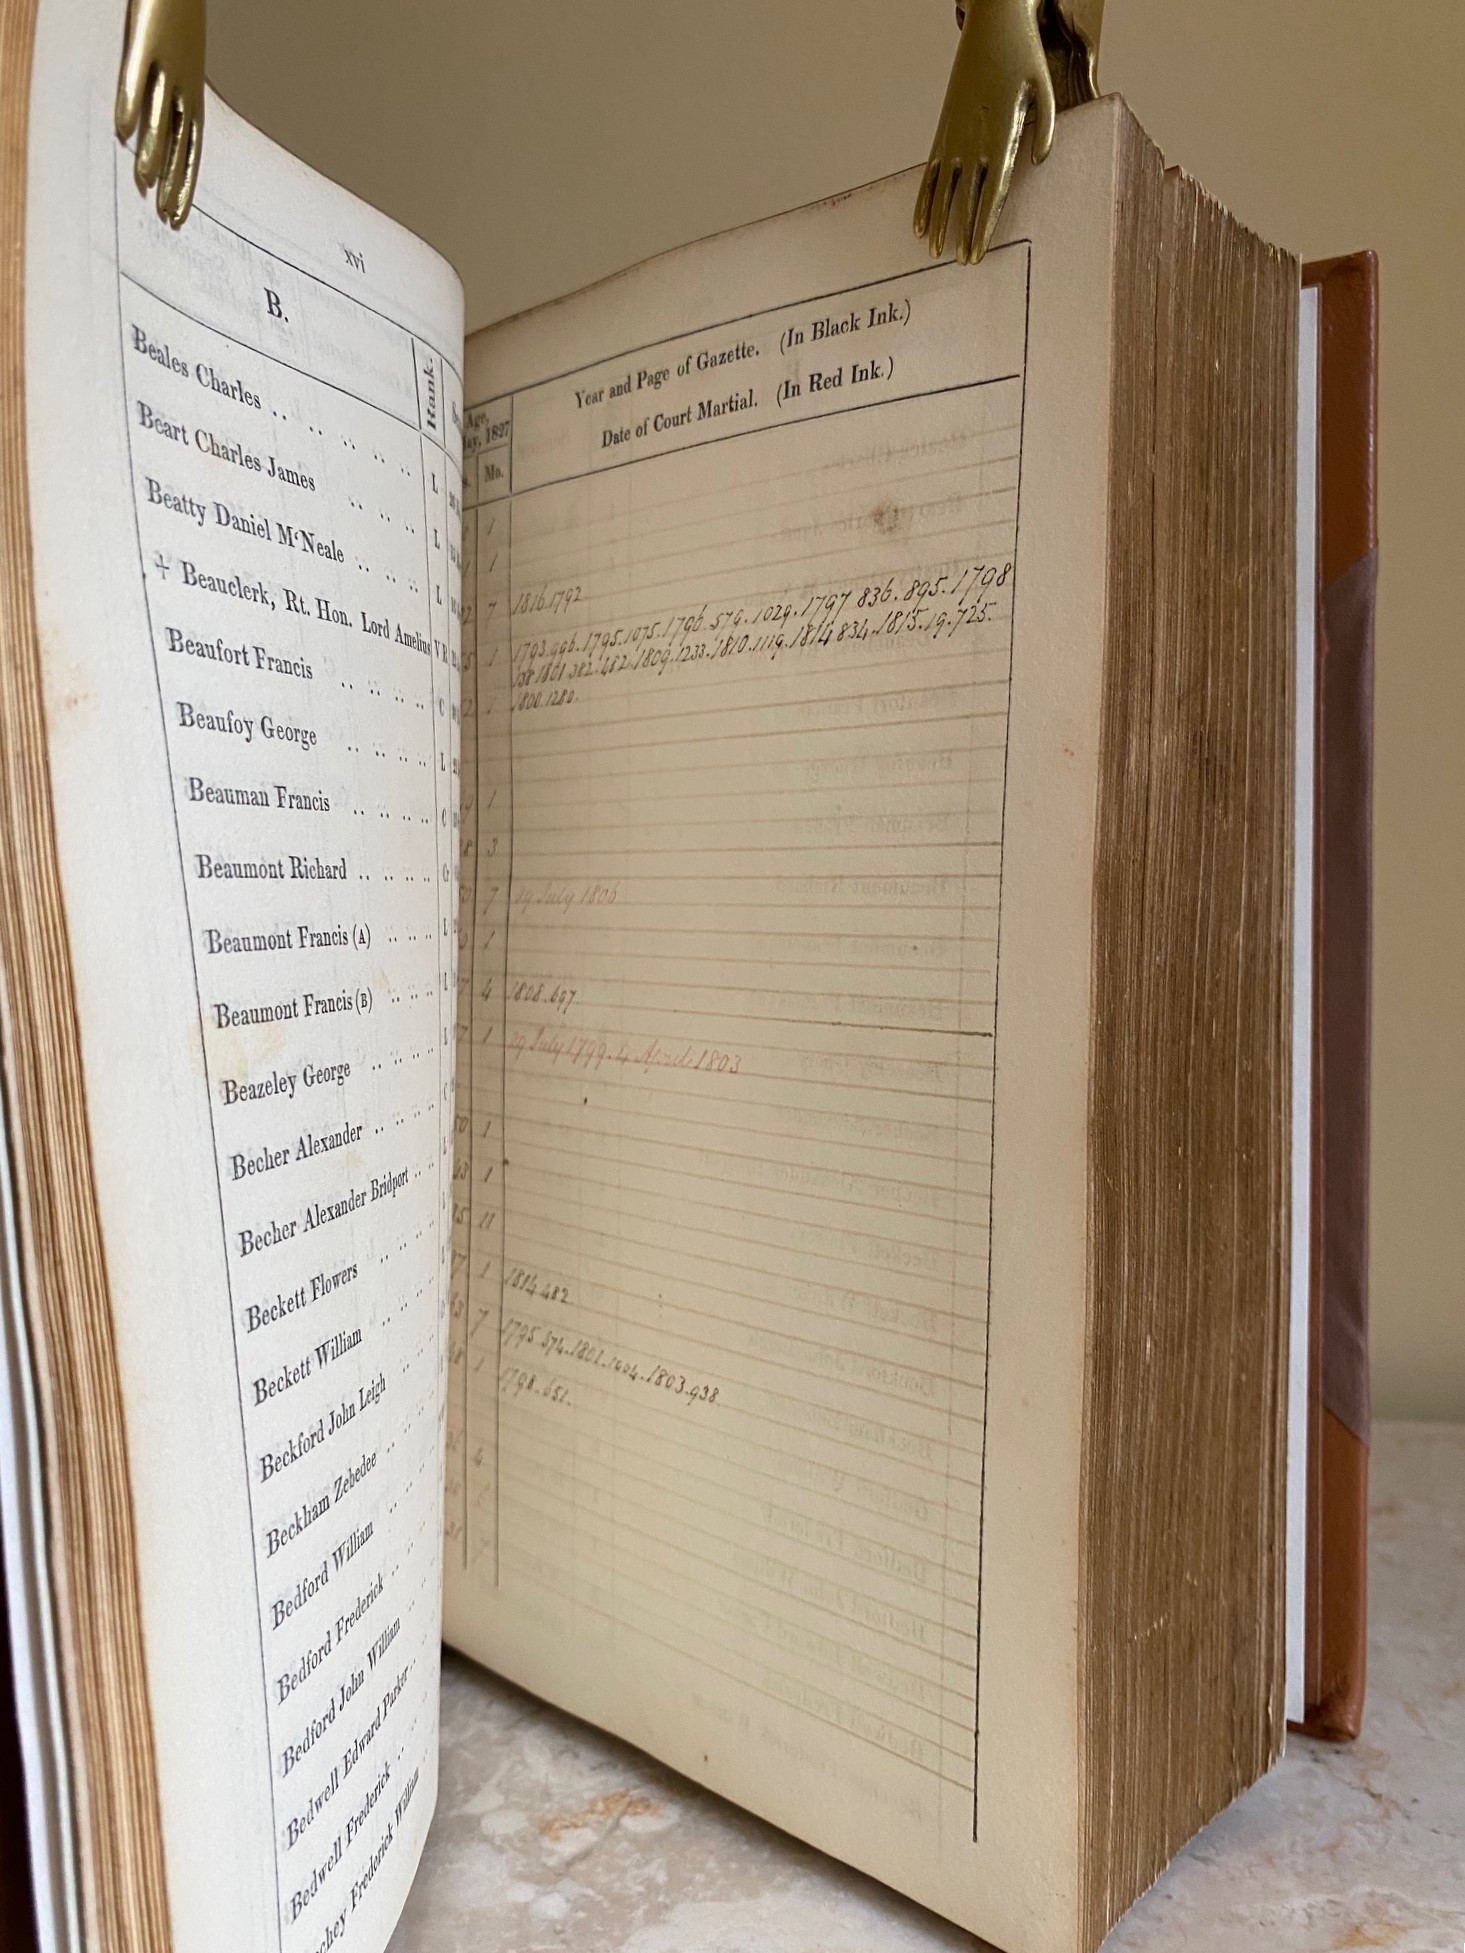 xvi
B.
Rank.
Beales Charles .. .. .. .. .. L
Beart Charles James .. .. .. L
Beatty Daniel M‘Neale .. .. .. L
+ Beauclerk, Rt. Hon. Lord Amelius VR
Beaufort Francis .. .. .. .. C
Beaufoy George .. .. .. .. L
Bauman Francis .. .. .. .. C
Beaumont Richard .. .. .. .. Cr
Beaumont Francis (A) .. .. .. L
Beaumont Francis (B) .. .. .. L
Beazeley George .. .. .. L
Becher Alexander .. .. .. .. C
Becher Alexander Bridport .. .. L
Beckett Flowers .. .. ..
Beckett William .. .. ..
Beckford John Leigh .. .. ..
Beckham Zebedee .. .. ..
Bedford William .. .. ..
Bedford Frederick .. ..
Bedford John William ..
Bedwell Edward Parker ..
Bedwell Frederick ..
Frederick William
Age,
1827
Mo.
Year and Page of Gazette. (In Black Ink.)
Date of Court Martial. (In Red Ink.)
1
1
7 1816.1792
1 1793.996.1795.1075.1796.579.1029.1797 836.895.1798
1801.382.482.1809.1233.1810.1119.1814 834.1815.19.725.
1800.1280.
1
3
7 29 July 1806
1
4 1808.697
1 29 July 1799. 4 April 1803
1
1
11
1 1814.482
7 1795.574.1801.1604.1803.938
1 1798.651.
4